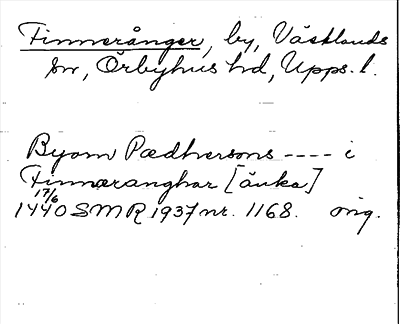 Finnerånger, by, Västlands
sn, Örbyhus hd, Upps. l.
Byorn Pædhersons ---- i
Finnæranghar [änka]
17/6
1440 SMR 1937 nr. 1168. orig.